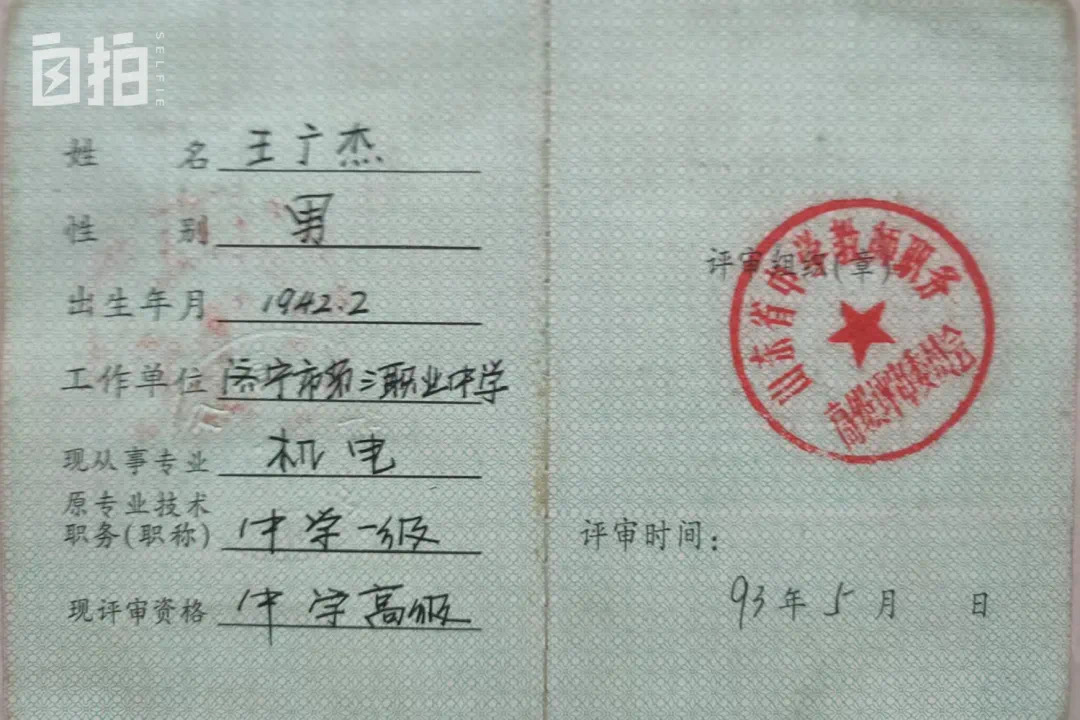 自拍
SELFIE
姓 名 王广杰
性 别 男
出生年月 1942.2
工作单位 济宁市第三职业中学
现从事专业 机电
原专业技术
职务(职称) 中学一级
现评审资格 中学高级
评审组织(章)
山东省中学教师职务
高级评审委员会
评审时间:
93年5月 日